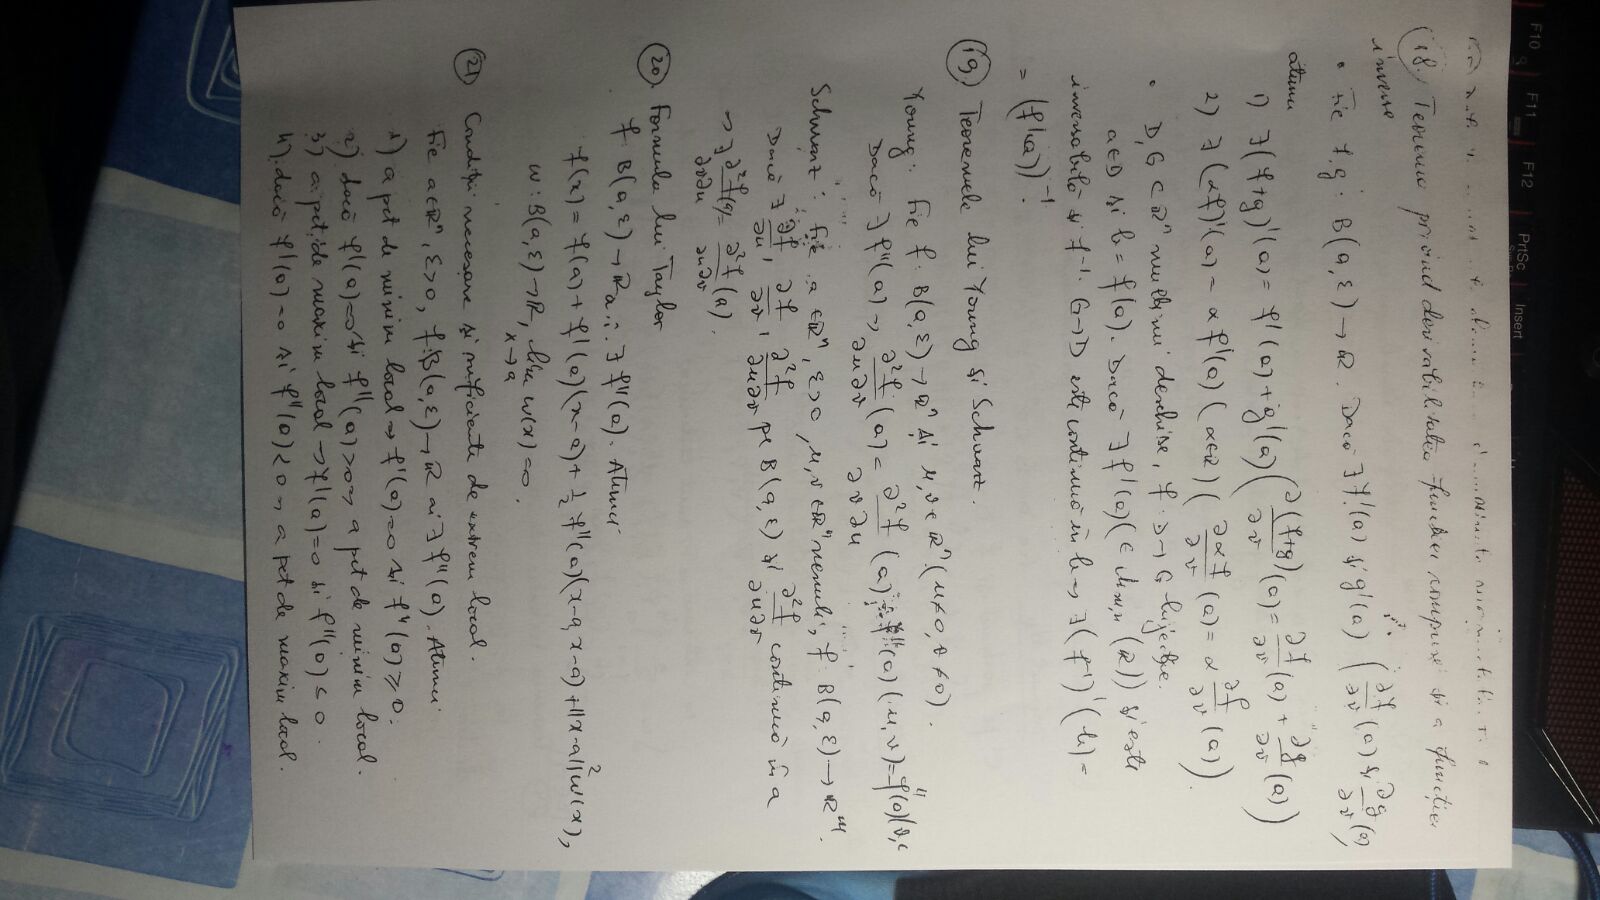 F10 F11 F12 PrtSc Insert
18. Teorema privind derivabilitatea funcției compuse și a funcției
inverse
• Fie f, g: B(a, ε) → ℝ. Dacă ∃ f'(a) și g'(a) (∂f/∂v (a) și ∂g/∂v (a),
atunci
1) ∃ (f+g)'(a) = f'(a) + g'(a) (∂(f+g)/∂v (a) = ∂f/∂v (a) + ∂g/∂v (a))
2) ∃ (αf)'(a) = α f'(a) (α∈ℝ) (∂αf/∂v (a) = α ∂f/∂v (a)).
• D, G ⊂ ℝⁿ mulțimi deschise, f: D → G bijecție.
a∈D și b = f(a). Dacă ∃ f'(a) (∈ (ℝ)) și este
inversabilă și f⁻¹: G→D este continuă în b ⇒ ∃ (f⁻¹)'(b) =
= (f'(a))⁻¹.
19. Teoremele lui Young și Schwarz.
Young: Fie f: B(a, ε) → ℝⁿ și u, v ∈ ℝⁿ (u≠0, v≠0).
Dacă ∃ f''(a) ⇒ ∂²f/∂u∂v (a) = ∂²f/∂v∂u (a) f''(a)(u, v) = f''(a)(v,
Schwarz: Fie a∈ℝⁿ, ε>0, u, v ∈ℝⁿ nenuli, f: B(a, ε) → ℝᵐ.
Dacă ∃ ∂f/∂u, ∂f/∂v, ∂²f/∂u∂v pe B(a, ε) și ∂²f/∂u∂v continuă în a
⇒ ∃ ∂²f/∂v∂u (a) = ∂²f/∂u∂v (a).
20. Formula lui Taylor
f: B(a, ε) → ℝ a.î. ∃ f''(a). Atunci
f(x) = f(a) + f'(a)(x-a) + ½ f''(a)(x-a, x-a) + ||x-a||² w(x),
w: B(a, ε) → ℝ, lim x→a w(x) = 0.
21 Condiții necesare și suficiente de extrem local.
Fie a∈ℝⁿ, ε>0, f: B(a, ε) → ℝ aî ∃ f''(a). Atunci
1) a pct de minim local ⇒ f'(a)=0 și f''(a) ≥ 0.
2) dacă f'(a)=0 și f''(a)>0 ⇒ a pct de minim local.
3) a pct. de maxim local ⇒ f'(a)=0 și f''(a) ≤ 0.
4) dacă f'(a)=0 și f''(a)<0 ⇒ a pct de maxim local.